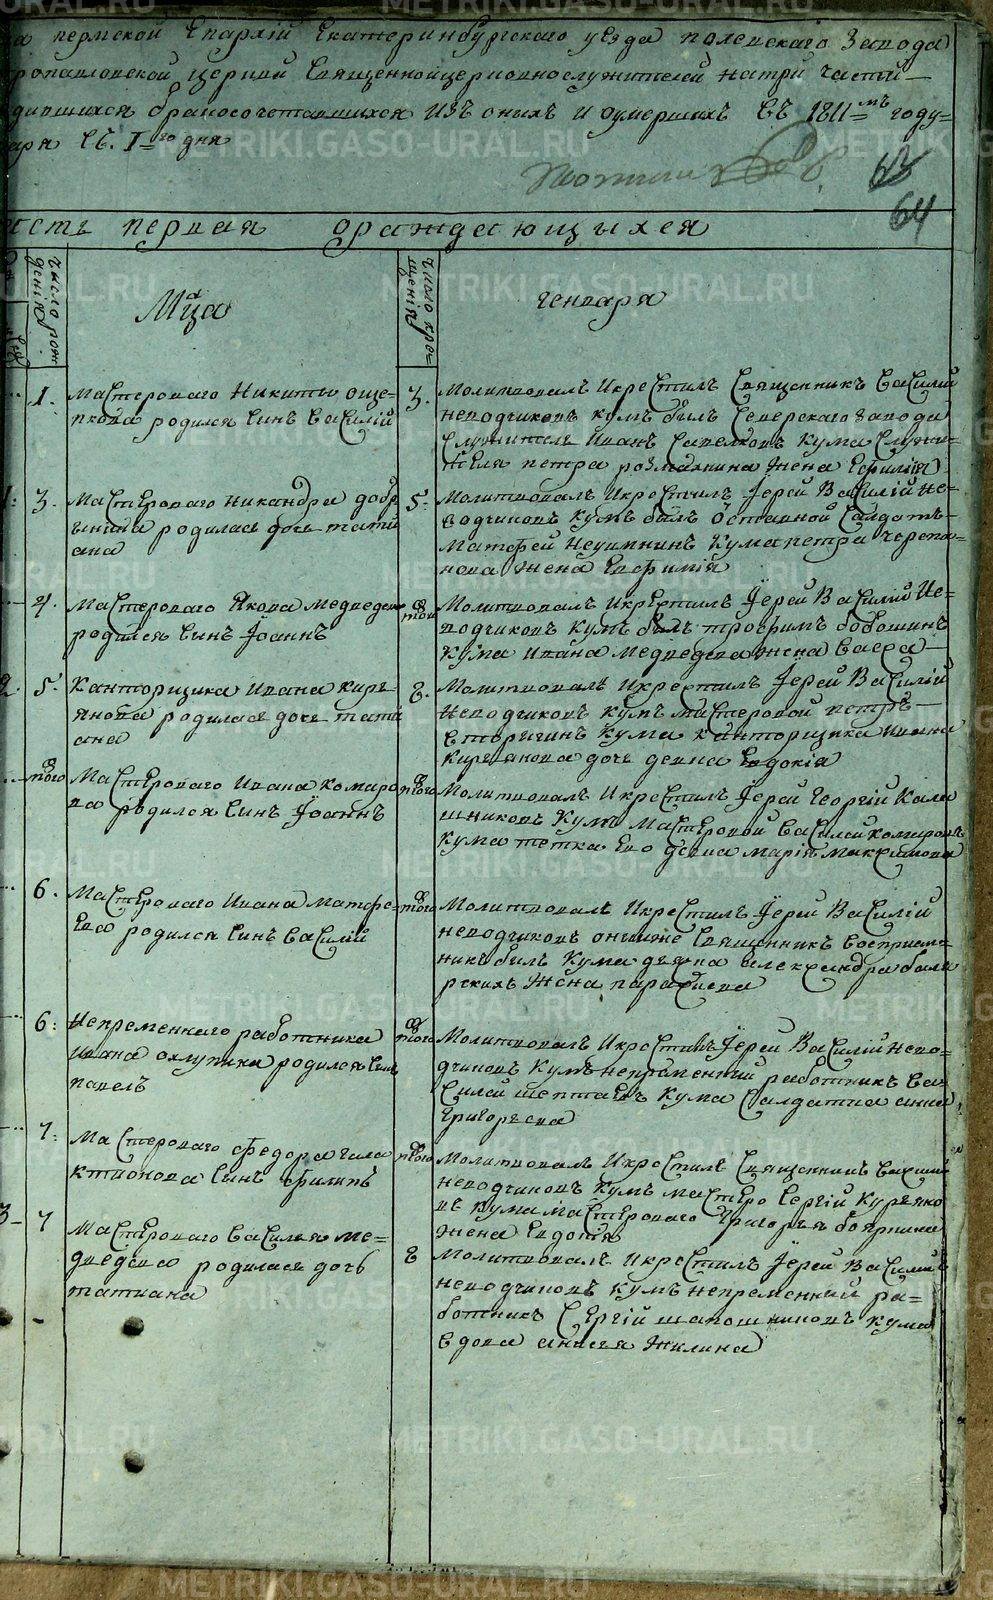 пермской Епархіи Екатеринбургскаго уезда полевскаго завода
ропавловской церкви Священноицерковнослужителей натри части
дившихся бракосочетавшихся изъ оныхъ и умершихъ въ 1811мъ году
варя съ. 1го дня
63
64
исть первая ораждающихся
число рож
дения
число кре
щения
Мца
генваря
1. Мастероваго Никиты още=
пкова родился сынъ Василій
3. Молитвовалъ Икрестилъ Священникъ Василій
неводчиковъ кумъ былъ Северскаго завода
Служитель Иванъ Савелковъ кума Служи=
теля петра жена
1. 3. Мастероваго Никандра добр
ынина родилась дочь тати
ана
5. Молитвовалъ Икрестилъ Іерей Василій Не=
водчиковъ кумъ былъ Отставной Салдатъ
Матфей Неуимнинъ кума петра черепа=
нова жена Евфимія
4. Мастероваго Якова Медведева
родился Сынъ Іоаннъ
Молитвовалъ Икрестилъ Іерей Василий Не=
водчиковъ кумъ былъ трофимъ бобошинъ
кума Ивана Медведева жена
2. 5. Канторщика Ивана Кирь
янова родилась дочь тати
ана
6. Молитвовалъ Икрестилъ Іерей Василій
Неводчиковъ кумъ Мастеровой петръ
Вторыгинъ кума канторщика Ивана
Кирьянова дочь девка Евдокія
того Мастероваго Ивана Комаро
ва родился Сынъ Іоаннъ
того Молитвовалъ Икрестилъ Іерей Георгій Кала
шниковъ Кумъ Мастеровой Василей комаровъ
кума тетка Ево девка марія максимова
6. Мастероваго Ивана Матфе=
ева родился Сынъ Василій
того Молитвовалъ Икрестилъ Іерей Василій
неводчиковъ онъже Священникъ восприем=
никъ былъ Кума дьяка александра
жена параскева
6. Непременнаго работника
Ивана охлупина родился Сынъ
павелъ
того Молитвовалъ Икрестилъ Іерей Василій Нево=
дчиковъ Кумъ непременный работникъ Ва
силей шептаевъ кума Салдатка анна
григорьева
7. Мастероваго федора гала
ктионова Сынъ филипъ
того Молитвовалъ Икрестилъ Священникъ Василий
неводчиковъ кумъ мастеро Сергій Курьяко
въ кума мастероваго григорья бояркина
жена Евдокія
3 7 Мастероваго Василья Ме=
дведева родилась дочь
татиана
8 Молитвовалъ Икрестилъ Іерей Василий
неводчиковъ кумъ непременный ра=
ботникъ Сергій шапошниковъ кума
вдова анисья жилина